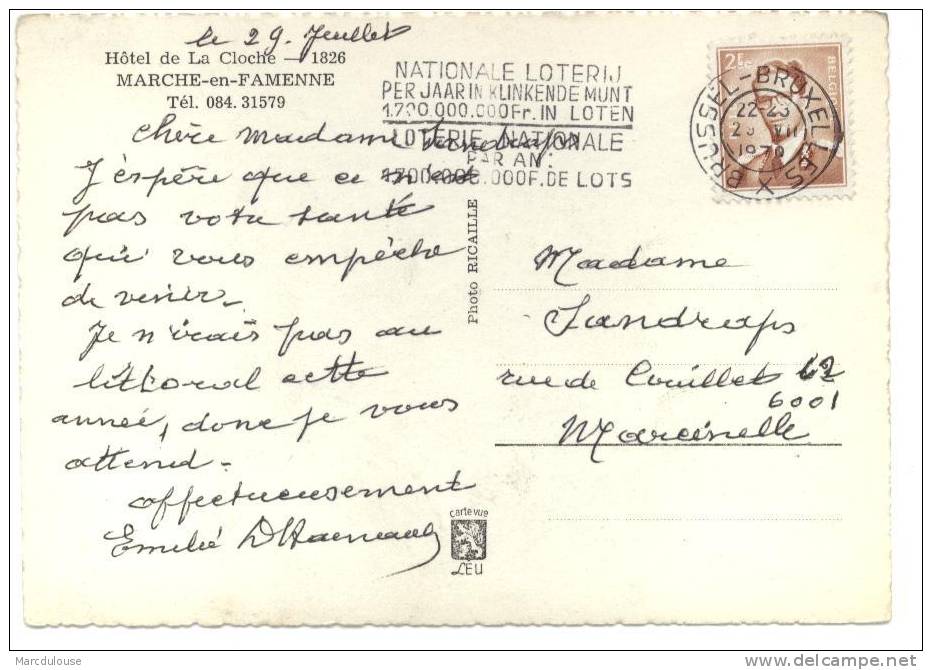 le 29. Juillet
Hôtel de La Cloche — 1826
MARCHE-en-FAMENNE
Tél. 084.31579
NATIONALE LOTERIJ
PER JAAR IN KLINKENDE MUNT
1.700.000.000Fr. IN LOTEN
LOTERIE NATIONALE
PAR AN:
1.700.000.000F. DE LOTS
2F50
BELGIE
BRUSSEL-BRUXELLES X
22-23
29 VII
1970
Chère Madame Landraps
J'espère que ce n'est
pas votre santé
qui vous empêche
de venir.
Je n'irais pas au
littoral cette
année, donc je vous
attend.
affectueusement
Emilie
Photo RICAILLE
Madame
Landraps
rue de Couillet 62
6001
Marcinelle
carte vue
LEU
Marcdulouse
delcampe.net